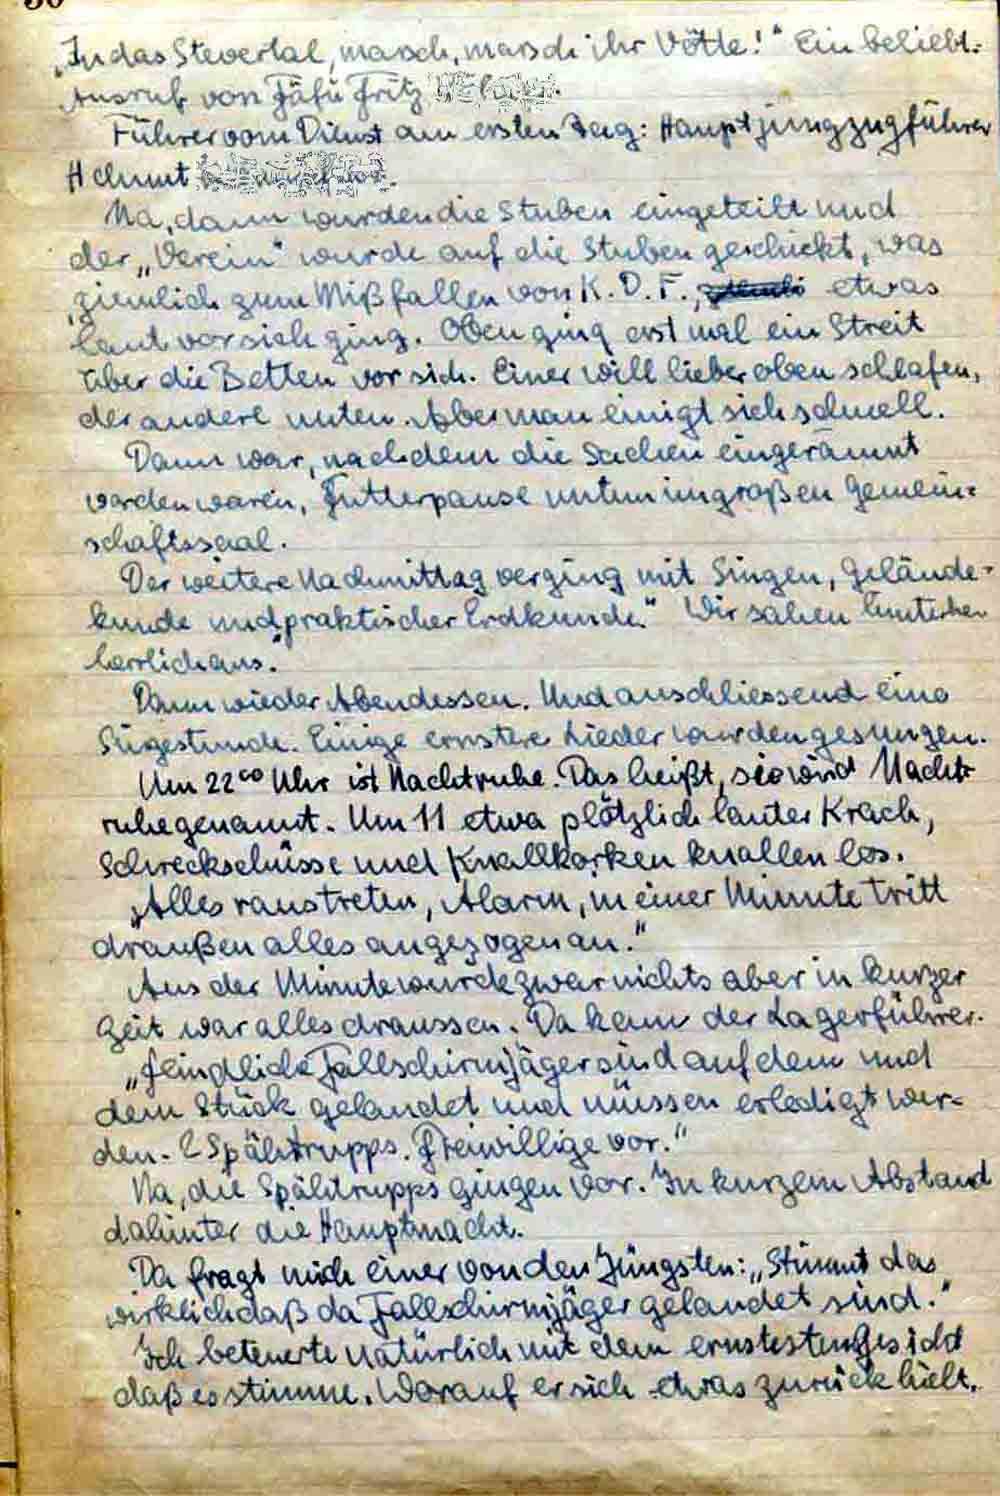 30
„In das Stevertal, marsch, marsch ihr Vötte!" Ein beliebt.
Ausruf von Fäfü Fritz
Führer vom Dienst am ersten Tag: Hauptjungzugführer
Helmut
Na, dann wurden die Stuben eingeteilt und
der „Verein" wurde auf die Stuben geschickt, was
ziemlich zum Mißfallen von K. D. F., etwas
laut vor sich ging. Oben ging erst mal ein Streit
über die Betten vor sich. Einer will lieber oben schlafen,
der andere unten. Aber man einigt sich schnell.
Dann war, nachdem die Sachen eingeräumt
worden waren, Futterpause unten im großen Gemein-
schaftssaal.
Der weitere Nachmittag verging mit Singen, Gelände-
kunde und „praktischer Erdkunde." Wir sahen hinterher
herrlich aus.
Dann wieder Abendessen. Und anschliessend eine
Singestunde. Einige ernstere Lieder wurden gesungen.
Um 22⁰⁰ Uhr ist Nachtruhe. Das heißt, sie wird Nacht-
ruhe genannt. Um 11 etwa plötzlich lauter Krach,
Schreckschüsse und Knallkorken knallen los.
„Alles raustreten, Alarm, in einer Minute tritt
draußen alles angezogen an."
Aus der Minute wurde zwar nichts aber in kurzer
Zeit war alles draussen. Da kam der Lagerführer.
„Feindliche Fallschirmjäger sind auf dem und
dem Stück gelandet und müssen erledigt wer-
den. 2 Spähtrupps. Freiwillige vor."
Na, die Spähtrupps gingen vor. In kurzem Abstand
dahinter die Hauptmacht.
Da fragt mich einer von den Jüngsten: „Stimmt das
wirklich daß da Fallschirmjäger gelandet sind."
Ich beteuerte natürlich mit dem ernstesten Gesicht
daß es stimme. Worauf er sich etwas zurück hielt.